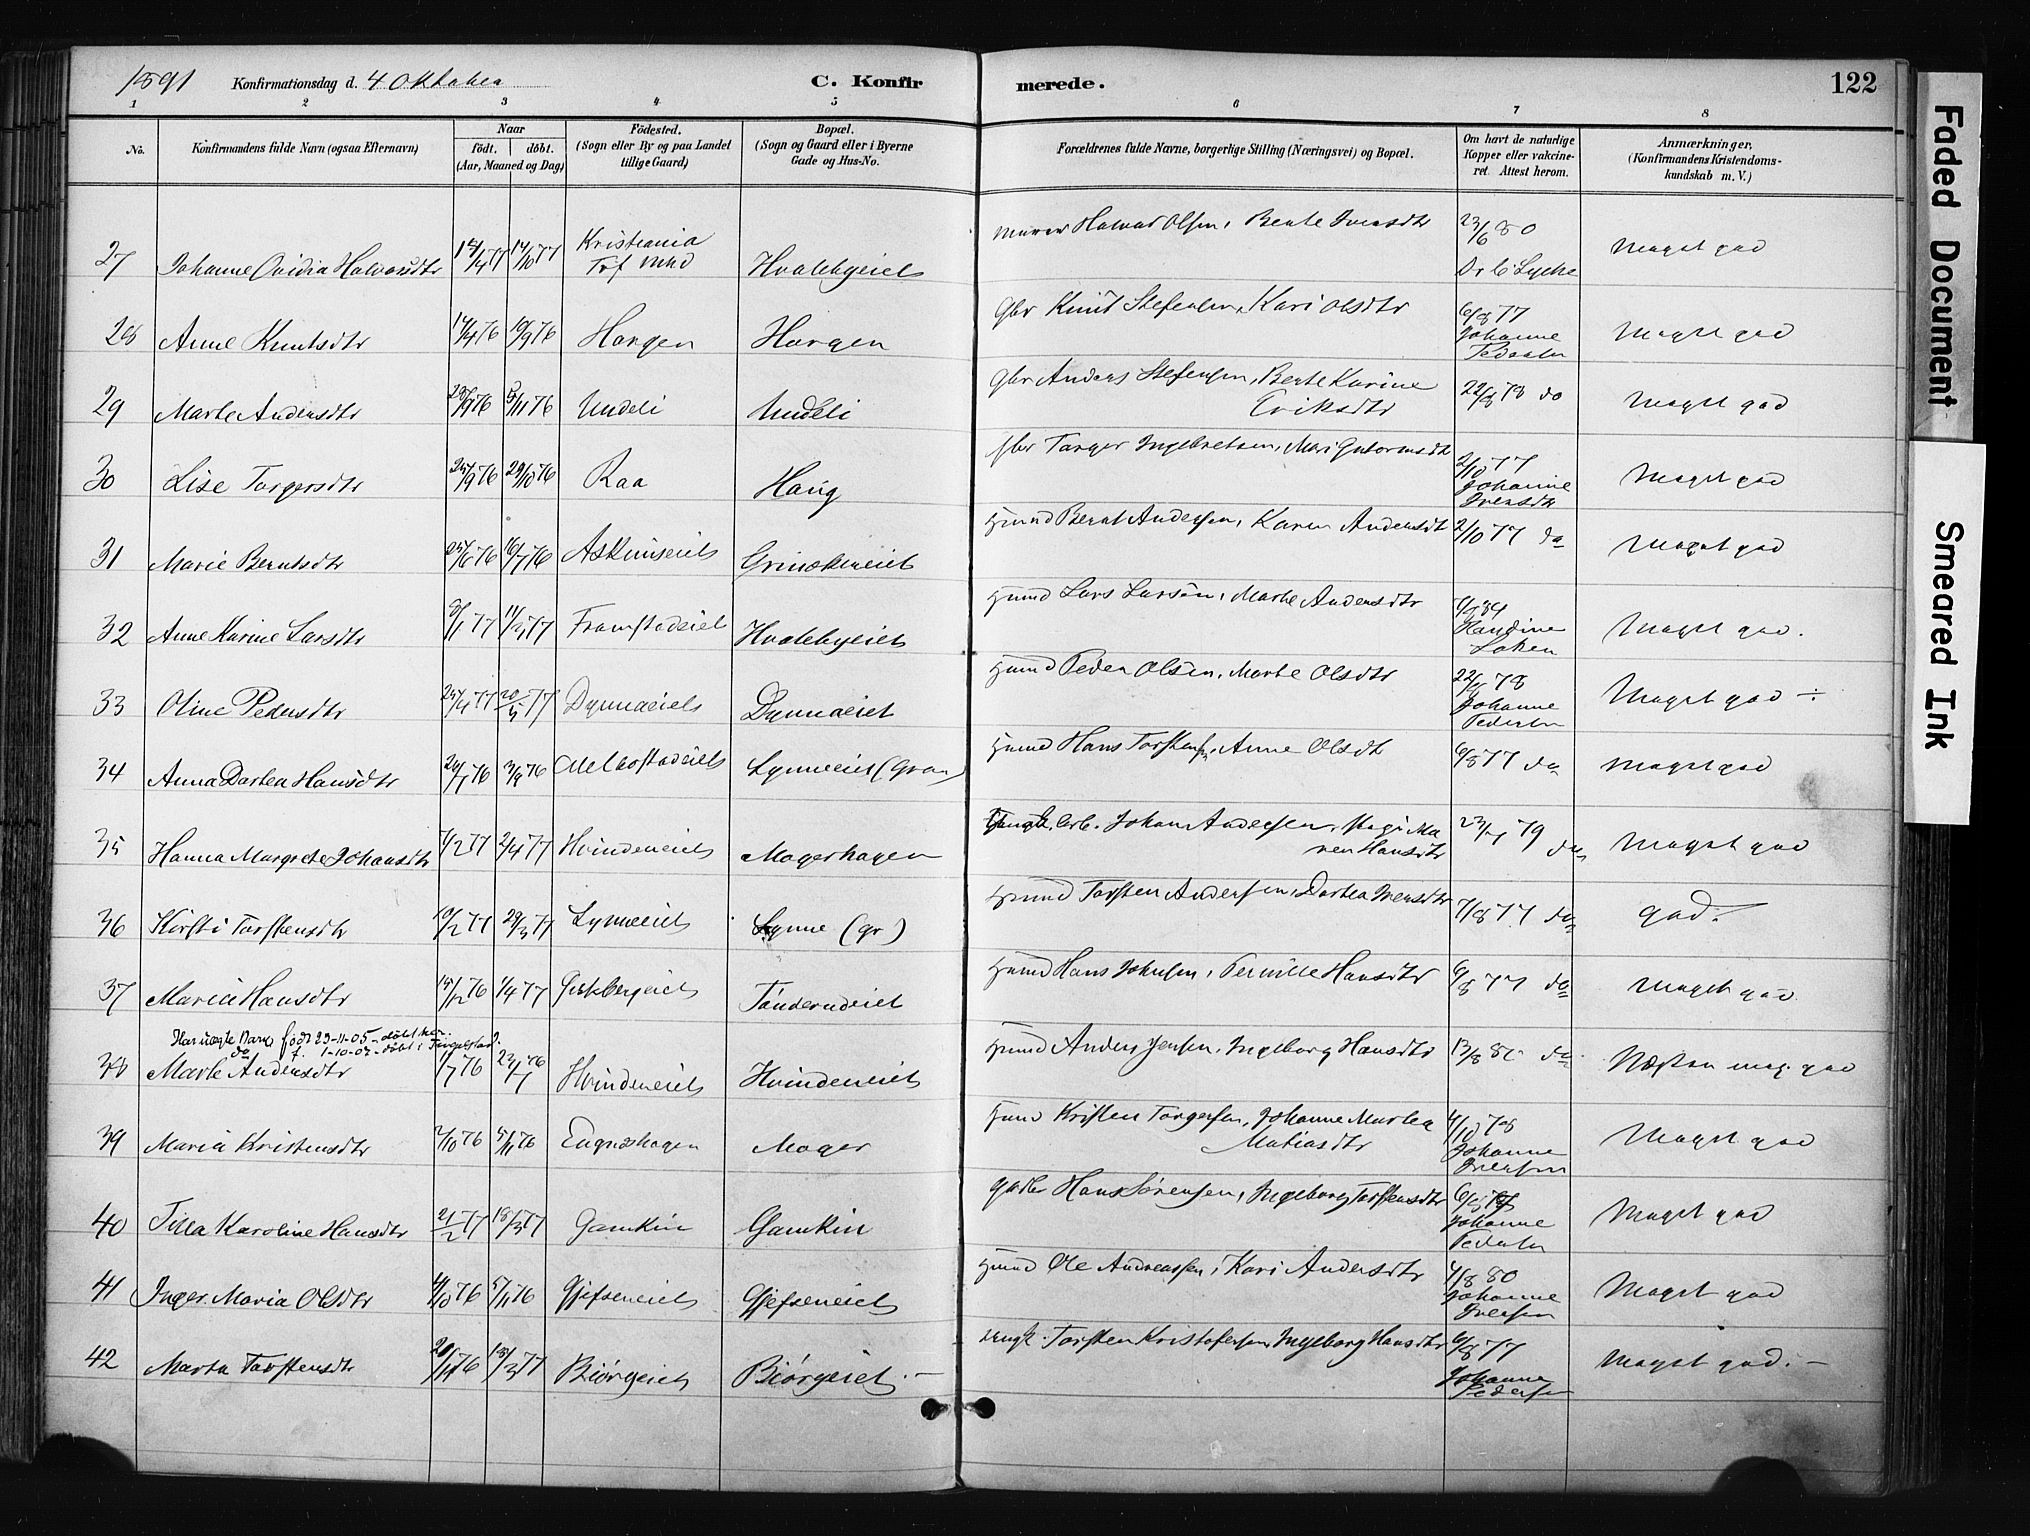 1891 Konfirmationsdag d. 4 Oktober C. Konfir merede. 122
1 2 3 4 5 6 7 8
No. Konfirmandens fulde Navn (ogsaa Efternavn) Naar födt. döbt. (Aar, Maaned og Dag) Födested. (Sogn eller By og paa Landet tillige Gaard) Bopæl. (Sogn og Gaard eller i Byerne Gade og Hus-No. Forældrenes fulde Navne, borgerlige Stilling (Næringsvei) og Bopæl. Om havt de naturlige Kopper eller vakcineret. Attest herom. Anmærkninger, (Konfirmandens Kristendomskundskab m. V.)
27 Johanne Ovidia Halvorsdtr 14/10 77 Kristiania Hvalebyeiet Murer Halvor Olsen, Berte Iversdtr 23/6 80 Meget god
28 Anne Knutsdtr 17/4 76 10/9 76 Horgen Horgen Gbr Knut Stefensen, Kari Olsdtr 6/8 77 Johanne Pedersen Meget god
29 Marte Andersdtr 5/11 76 Undeli Undeli Gbr Anders Stefensen, Berte Karine Eriksdtr 22/8 78 do Meget god
30 Lise Torgersdtr 25/9 76 29/10 76 Raa Haug Torger Ingebretsen, Mari Gutormsdtr 2/10 77 Johanne Iversdtr Meget god
31 Marie Berntsdtr 25/6 76 16/7 76 Askimseiet Grinakereiet Hmnd Bernt Andersen, Karen Andersdt 2/10 77 do Meget god
32 Anne Karine Larsdtr 8/1 77 11/3 77 Framstadeiet Hvalebyeiet Hmnd Lars Larsen, Marte Andersdtr Meget god.
33 Oline Pedersdtr 25/4 77 20/5 77 Dynnaeiet Dynnaeiet Hmnd Peder Olsen, Marte Olsdtr 22/8 78 Johanne Pedersen Meget god ÷
34 Anna Dortea Hansdtr 3/9 76 Melbostadeiet Lynneeiet (Gran) Hmnd Hans Torstensen, Anne Olsdtr 6/8 77 do Meget god
35 Hanna Margrete Johansdtr 7/2 77 2/4 77 Hvindeneiet Mogerhagen Arb. Johan Andersen, Maren Hansdtr 79 do Meget god
36 Kirsti Torstensdtr 10/2 77 29/3 77 Lynneeiet Lynne (gr) Hmnd Torsten Andersen, Dortea Iversdtr 7/8 77 do god.
37 Maria Hansdtr 15/12 76 1/4 77 Gjskbergeiet Tönderudeiet Hmnd Hans Johnsen, Pernille Hansdtr 6/8 77 do Meget god.
Har uægte Barn født 23-11-05 - döbt her.
do f. 1-10-07 - döbt i Tingelstad.
38 Marte Andersdtr 1/7 76 23/7 76 Hvindeneiet Hvindeneiet Hmnd Anders Jensen, Ingeborg Hansdtr do Næsten meg. god
39 Maria Kristensdtr 2/10 76 5/11 76 Engnæshagen Moger Hmnd Kristen Torgersen, Johanne Martea Matiasdtr 4/10 78 Johanne Iversen Meget god
40 Tilla Karoline Hansdtr 21/2 77 18/3 77 Gamkin Gamkin Hans Sörensen, Ingeborg Torstensdtr Johanne Pedersen Meget god
41 Inger Maria Olsdtr 4/10 76 5/11 76 Gjefseneiet Gjefseneiet Hmnd Ole Andreassen, Kari Andersdtr 4/8 80 Johanne Iversen Meget god
42 Marta Torstensdtr 18/3 77 Biørgeiet Biørgeiet.— Torsten Kristofersen, Ingeborg Hansdtr 6/8 77 Johanne Pedersen Meget god.—
Faded Document
Smeared Ink